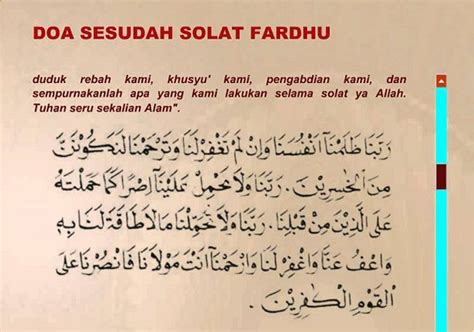 DOA SESUDAH SOLAT FARDHU
duduk rebah kami, khusyu' kami, pengabdian kami, dan
sempurnakanlah apa yang kami lakukan selama solat ya Allah.
Tuhan seru sekalian Alam".
رَبَّنَا ظَلَمْنَآ اَنْفُسَنَا وَاِنْ لَمْ تَغْفِرْلَنَا وَتَرْحَمْنَا لَنَكُوْنَنَّ
مِنَ الْخٰسِرِيْنَ . رَبَّنَا وَلَا تَحْمِلْ عَلَيْنَآ اِصْرًا كَمَا حَمَلْتَهُ
عَلَى الَّذِيْنَ مِنْ قَبْلِنَا . رَبَّنَا وَلَا تُحَمِّلْنَا مَالَا طَاقَةَ لَنَا بِهِ
وَاعْفُ عَنَّا وَاغْفِرْ لَنَا وَارْحَمْنَآ اَنْتَ مَوْلَانَا فَانْصُرْنَا عَلَى
الْقَوْمِ الْكٰفِرِيْنَ .